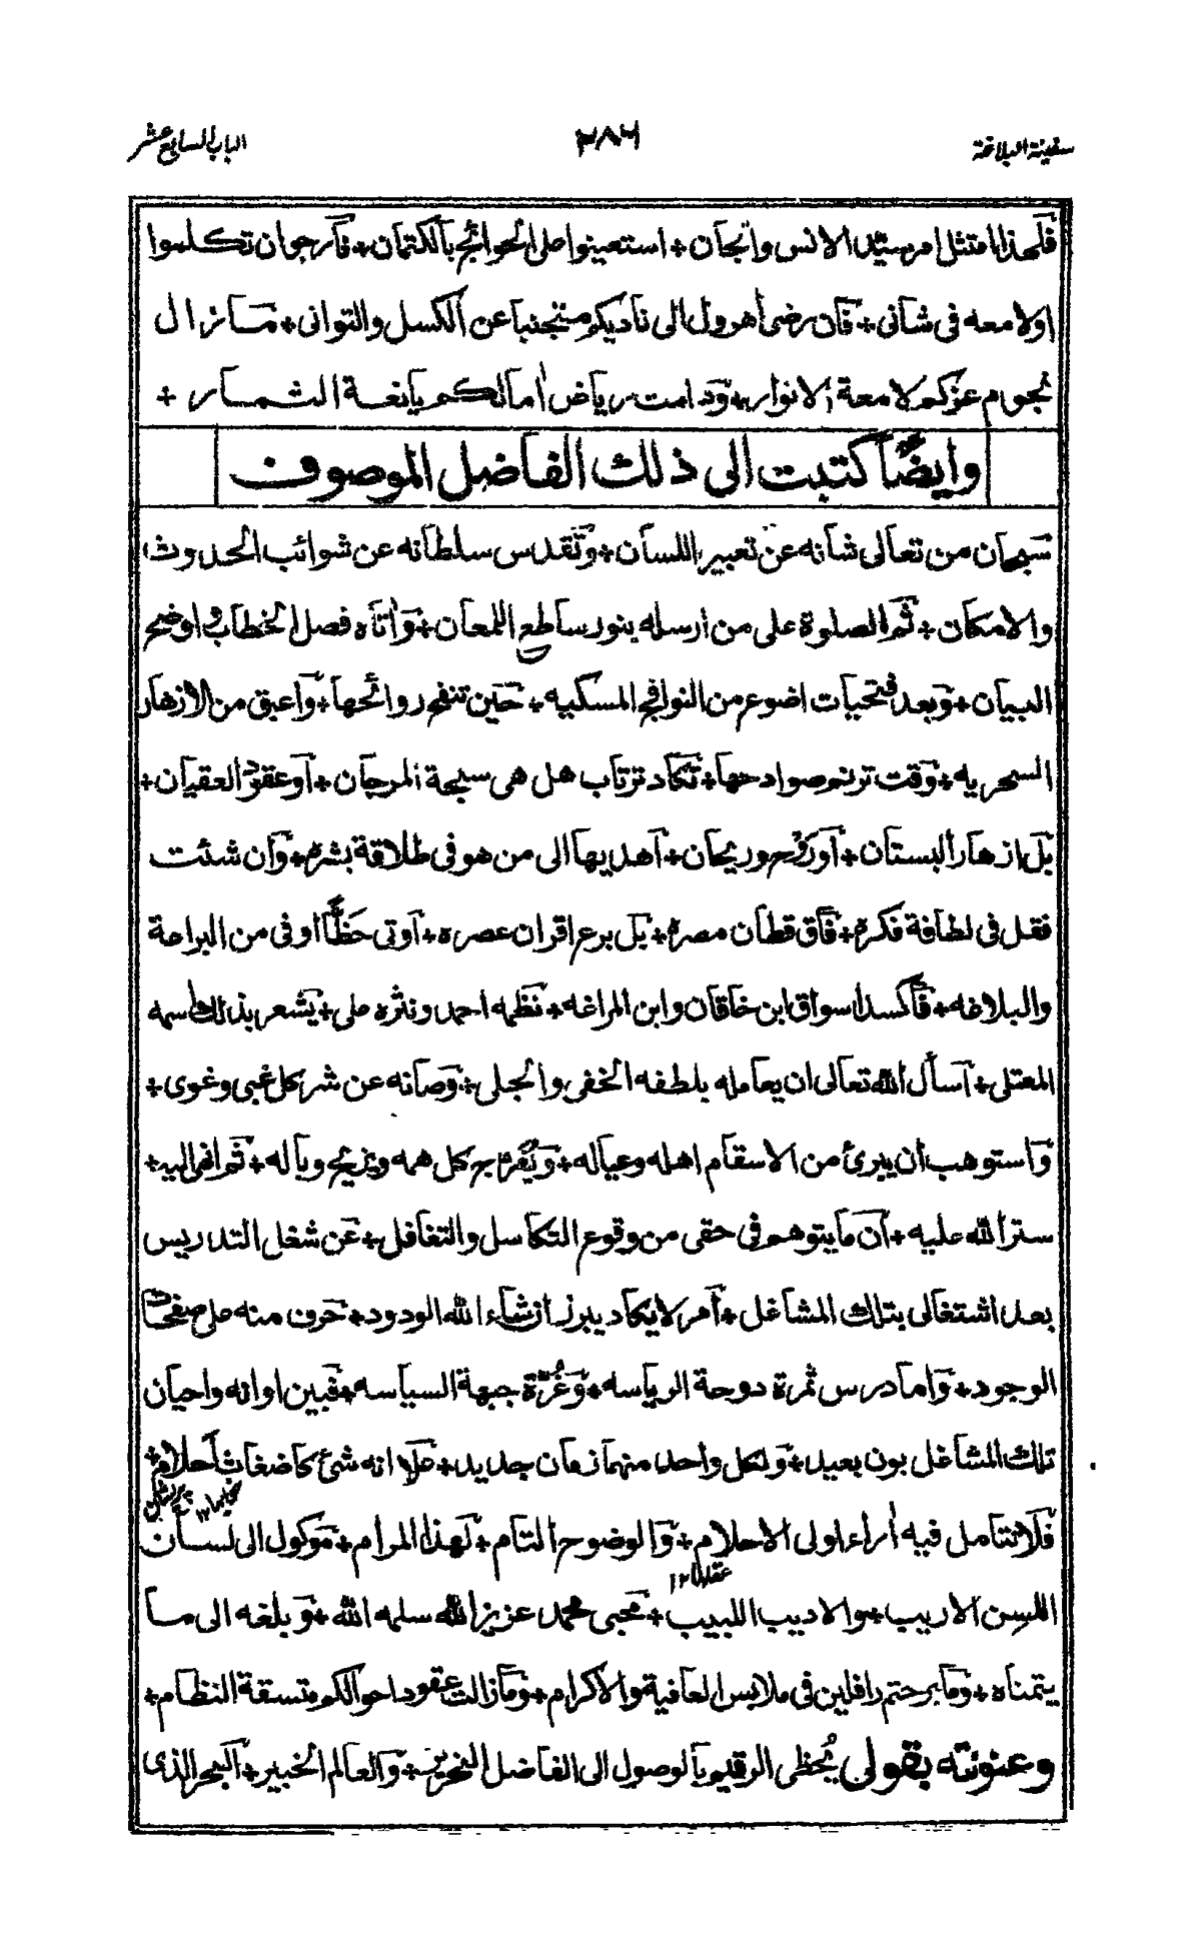 سفينة البلاغة
٢٨٦
الباب السابع عشر
فلهذا امتثل امر سيّد الانس والجان + استعينوا على الحوائج بالكتمان + فارجوان تكلموا
اولا معه فى شانى + فان رضى اهرول الى ناديكم متجنبا عن الكسل والتوانى + ما زال
نجوم عزكم لامعة الانوار + ودامت رياض امالكم يانعة الثمار +
وايضًا كتبت الى ذلك الفاضل الموصوف
سبحان من تعالى شانه عن تعبير اللسان + وتقدس سلطانه عن شوائب الحدوث
والامكان + ثم الصلوة على من ارسله بنور ساطع اللمعان + واتاه فصل الخطاب واوضح
البيان + وبعد فتحيات اضوع من النوافج المسكيه + حين تنفح روائحها + واعبق من الازهار
السحريه + وقت ترنم صوادحها + تكاد ترتاب هل هى سبحة المرجان + او عقود العقيان +
بل ازهار البستان + او رَوْح وريحان + اهديها الى من هو فى طلاقة بشره + وان شئت
فقل فى لطافة فكره + فاق قطان مصره + بل برع اقران عصره + اوتى حَظًّا اوفى من البراعة
والبلاغه + فاكسد اسواق ابن خاقان وابن المراغه + نظمه احمد ونثره على + يشعر بذلك اسمه
المعتلى + اسأل الله تعالى ان يعامله بلطفه الخفى والجلى + وصانه عن شر كل غبى وغوى +
واستوهب ان يبرئ من الاسقام اهله وعياله + ويُفرّج كل همه ويزيح وباله + ثم انهى اليه +
ستر الله عليه + ان ما يتوهم فى حقى من وقوع التكاسل والتغافل + عن شغل التدريس
بعد اشتغالى بتلك المشاغل + امر لا يكاد يبرز انشاء الله الودود + حرف منه على صفحات
الوجود + واما درس ثمرة دوحة الرياسه + وغُرّة جبهة السياسه + فبين اوانه واحيان
تلك المشاغل بون بعيد + ولكل واحد منهما زمان جديد + علا انه شئ كاضغاث احلام +
فلا تتامل فيه اراء اولى الاحلام + والوضوح التام + لهذا المرام + موكول الى لسان
عقلها ١٢
اللسِن الاريب + والاديب اللبيب + محبى محمد عزيز الله سلمه الله + وبلغه الى ما
يتمناه + وما برحتم رافلين فى ملابس العافية والاكرام + وما زالت عقود احوالكم متسقة النظام +
وعنونته بقولى يُحظى الرقيم بالوصول الى الفاضل النحرير + والعالم الخبير + البحر الذى